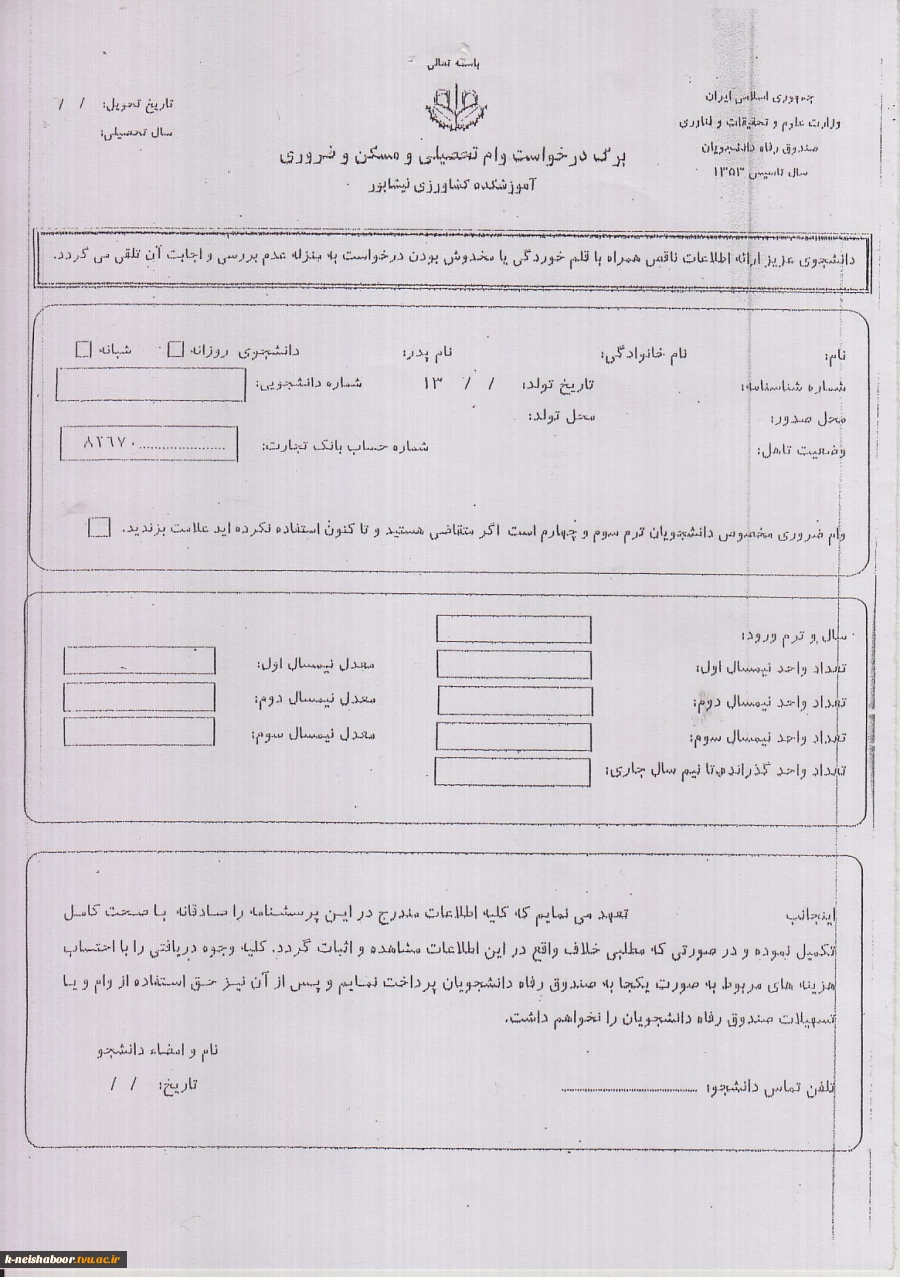 باسمه تعالی
جمهوری اسلامی ایران
وزارت علوم و تحقیقات و فناوری
صندوق رفاه دانشجویان
سال تاسیس ۱۳۵۳
تاریخ تحویل: / /
سال تحصیلی:
برگ درخواست وام تحصیلی و مسکن و ضروری
آموزشکده کشاورزی نیشابور
دانشجوی عزیز ارائه اطلاعات ناقص همراه با قلم خوردگی یا مخدوش بودن درخواست به منزله عدم بررسی و اجابت آن تلقی می گردد.
نام: نام خانوادگی: نام پدر: دانشجوی روزانه □ شبانه □
شماره شناسنامه: تاریخ تولد: / / ۱۳ شماره دانشجویی:
محل صدور: محل تولد:
وضعیت تاهل: شماره حساب بانک تجارت: ......................۸۲۶۷۰
وام ضروری مخصوص دانشجویان ترم سوم و چهارم است اگر متقاضی هستید و تا کنون استفاده نکرده اید علامت بزندید. □
سال و ترم ورود:
تعداد واحد نیمسال اول: معدل نیمسال اول:
تعداد واحد نیمسال دوم: معدل نیمسال دوم:
تعداد واحد نیمسال سوم: معدل نیمسال سوم:
تعداد واحد گذرانده تا نیم سال جاری:
اینجانب تعهد می نمایم که کلیه اطلاعات مندرج در این پرسشنامه را صادقانه با صحت کامل
تکمیل نموده و در صورتی که مطلبی خلاف واقع در این اطلاعات مشاهده و اثبات گردد. کلیه وجوه دریافتی را با احتساب
هزینه های مربوط به صورت یکجا به صندوق رفاه دانشجویان پرداخت نمایم و پس از آن نیز حق استفاده از وام و یا
تسهیلات صندوق رفاه دانشجویان را نخواهم داشت.
نام و امضاء دانشجو
تلفن تماس دانشجو: ................................ تاریخ: / /
k-neishaboor.tvu.ac.ir